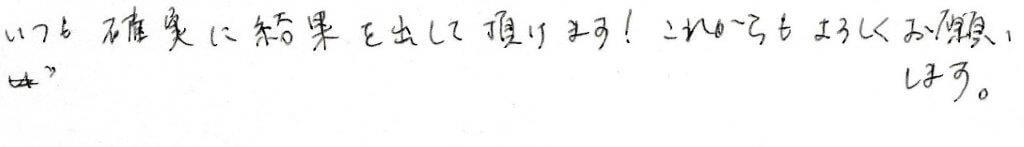 いつも確実に結果を出して頂けます！これからもよろしくお願い
します。